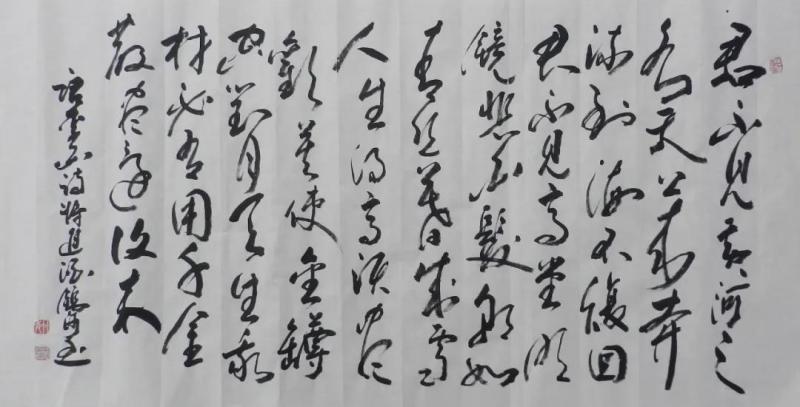 君不见黄河之
水天上来奔
流到海不復回
君不见高堂明
鏡悲白髮朝如
青丝暮成雪
人生得意须尽
歡莫使金罇
空对月天生我
材必有用千金
散尽還復来
唐李白诗将進酒